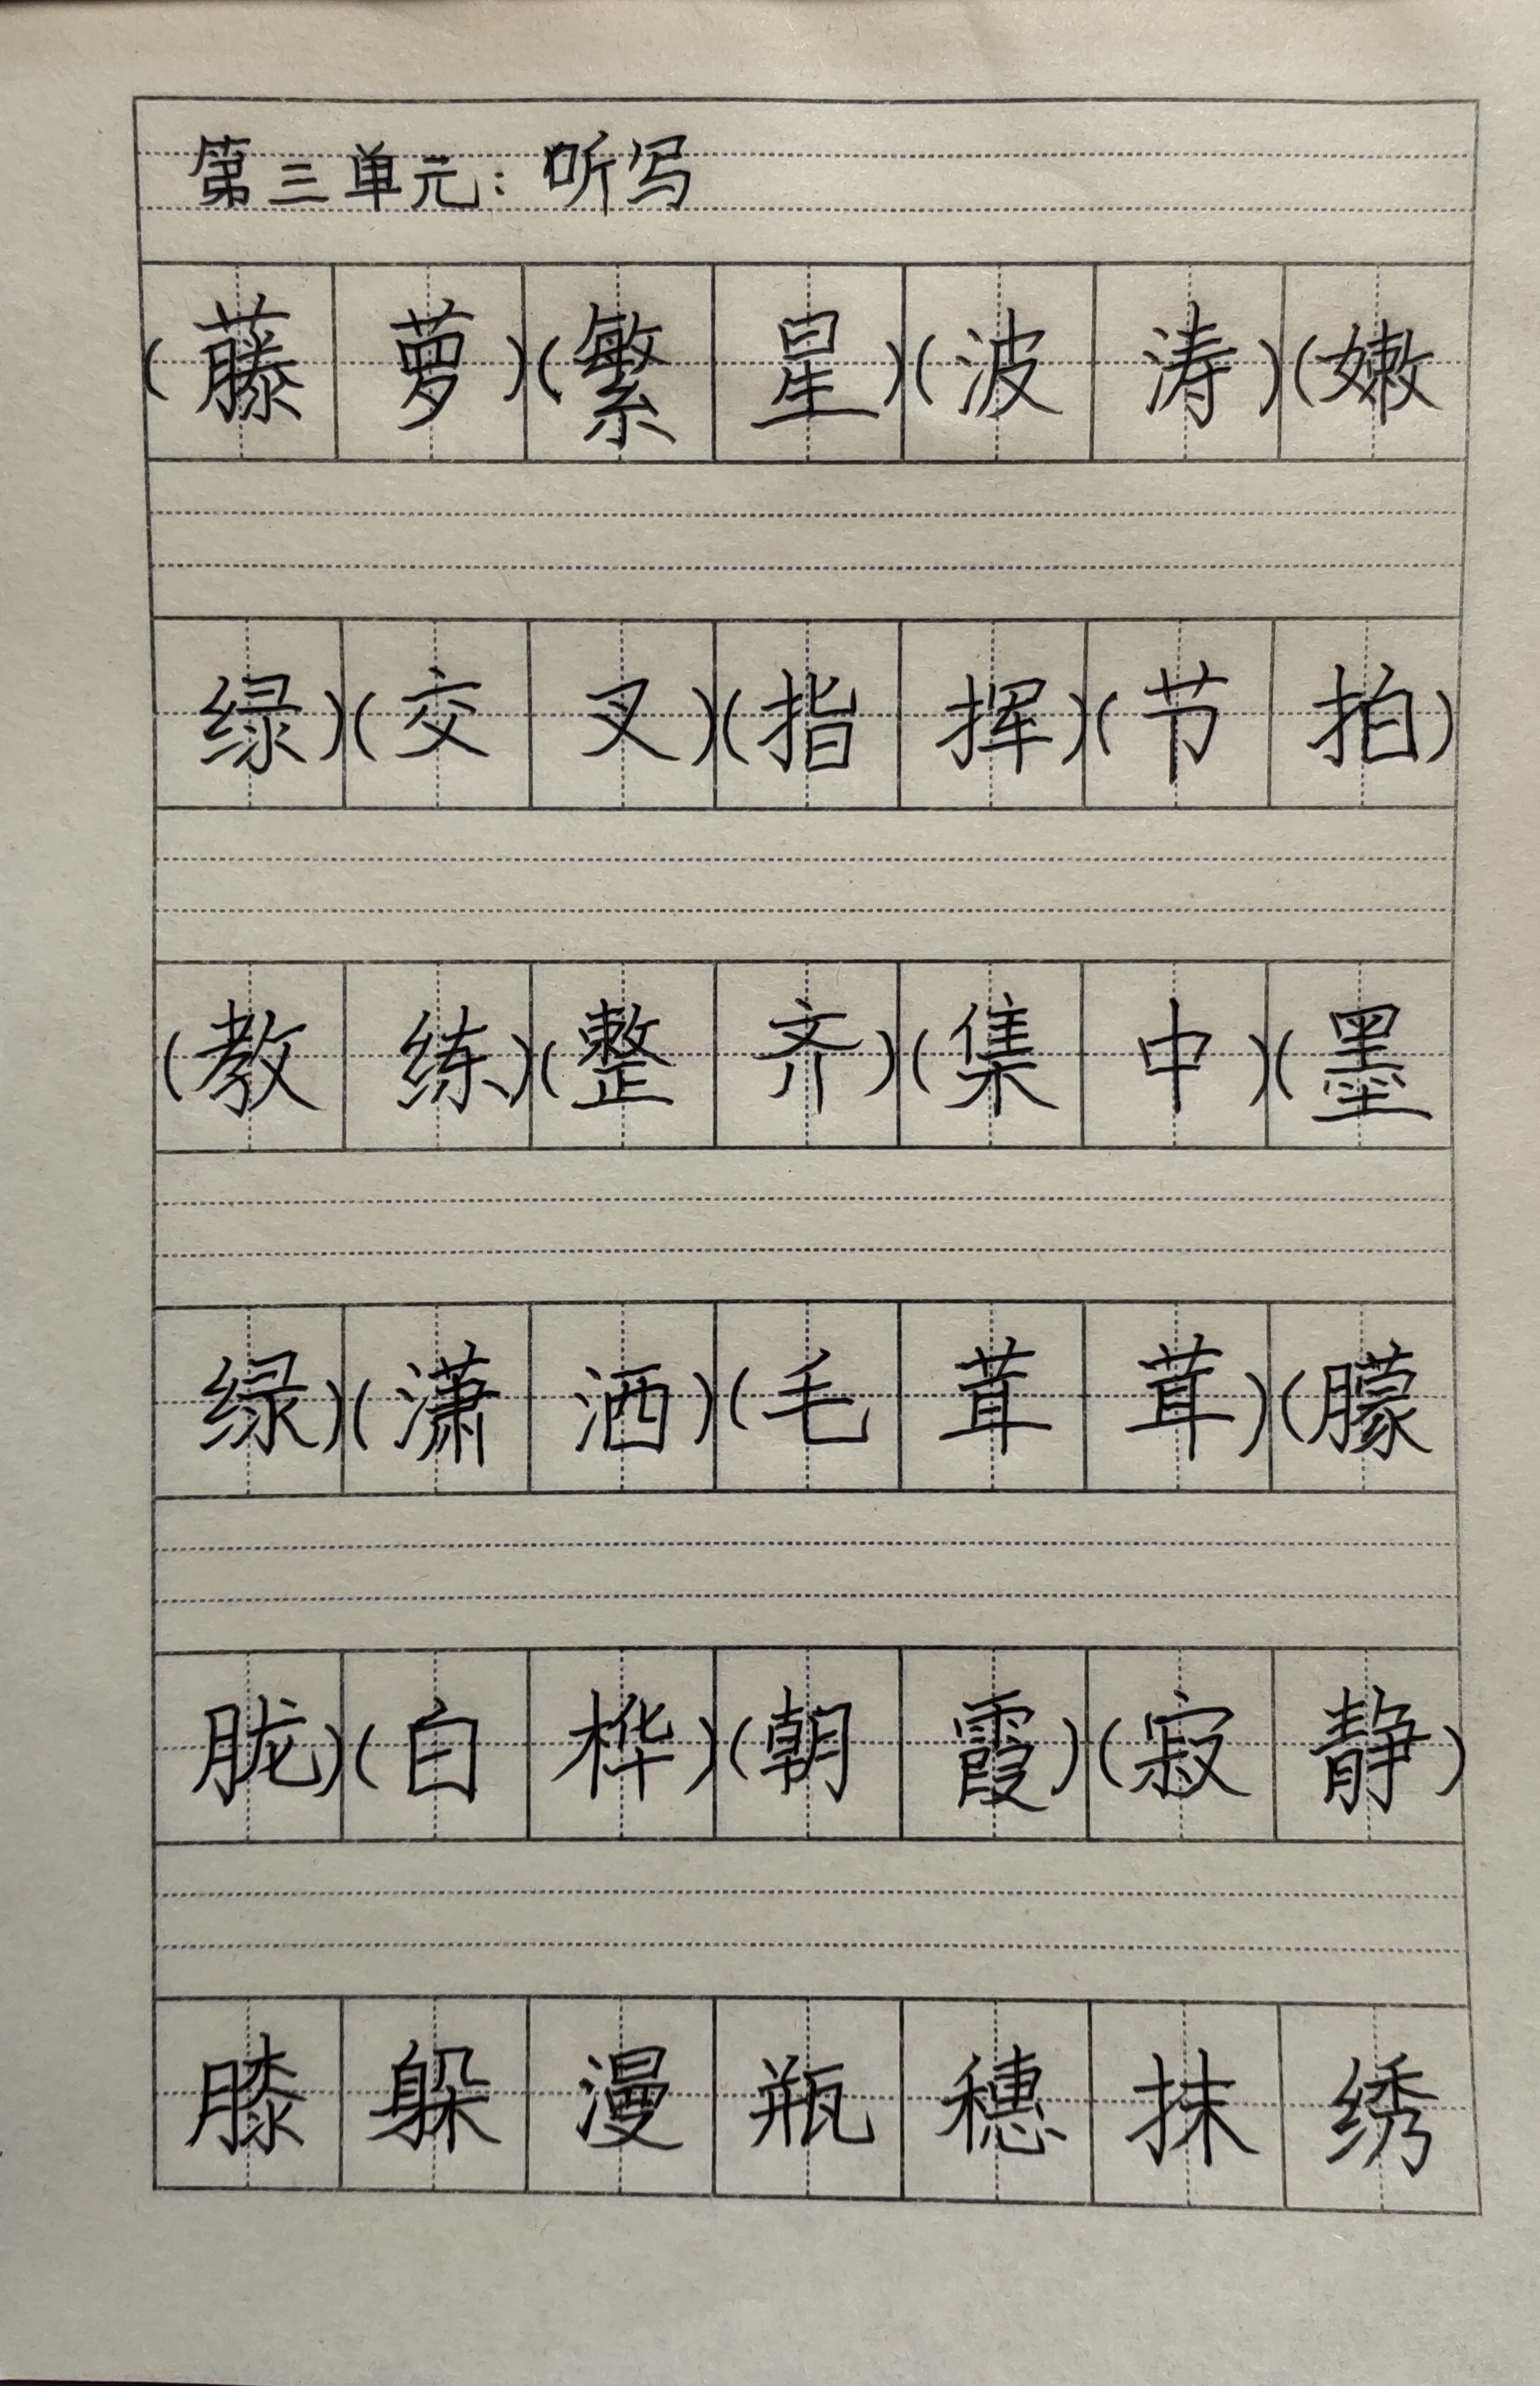 第三单元：听写
(藤萝)(繁星)(波涛)(嫩
绿)(交叉)(指挥)(节拍)
(教练)(整齐)(集中)(墨
绿)(潇洒)(毛茸茸)(朦
胧)(白桦)(朝霞)(寂静)
膝躲漫瓶穗抹绣